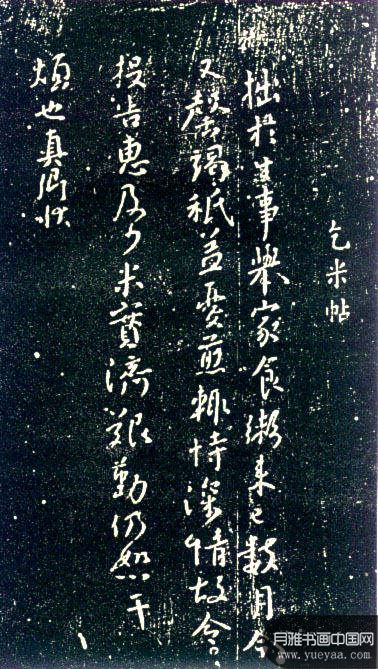 乞米帖
拙於生事舉家食粥來已數月今
又罄竭秖益憂煎輒恃深情故令
投告惠及少米實濟艱勤仍恕干
煩也真卿狀
月雅书画中国网
www.yueyaa.com